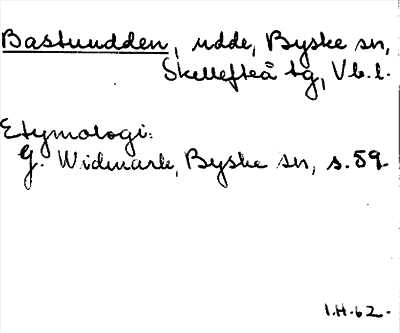 Bastuudden, udde, Byske sn,
Skellefteå tg, Vb.l.
Etymologi:
G. Widmark, Byske sn, s. 59.
I.H.62.